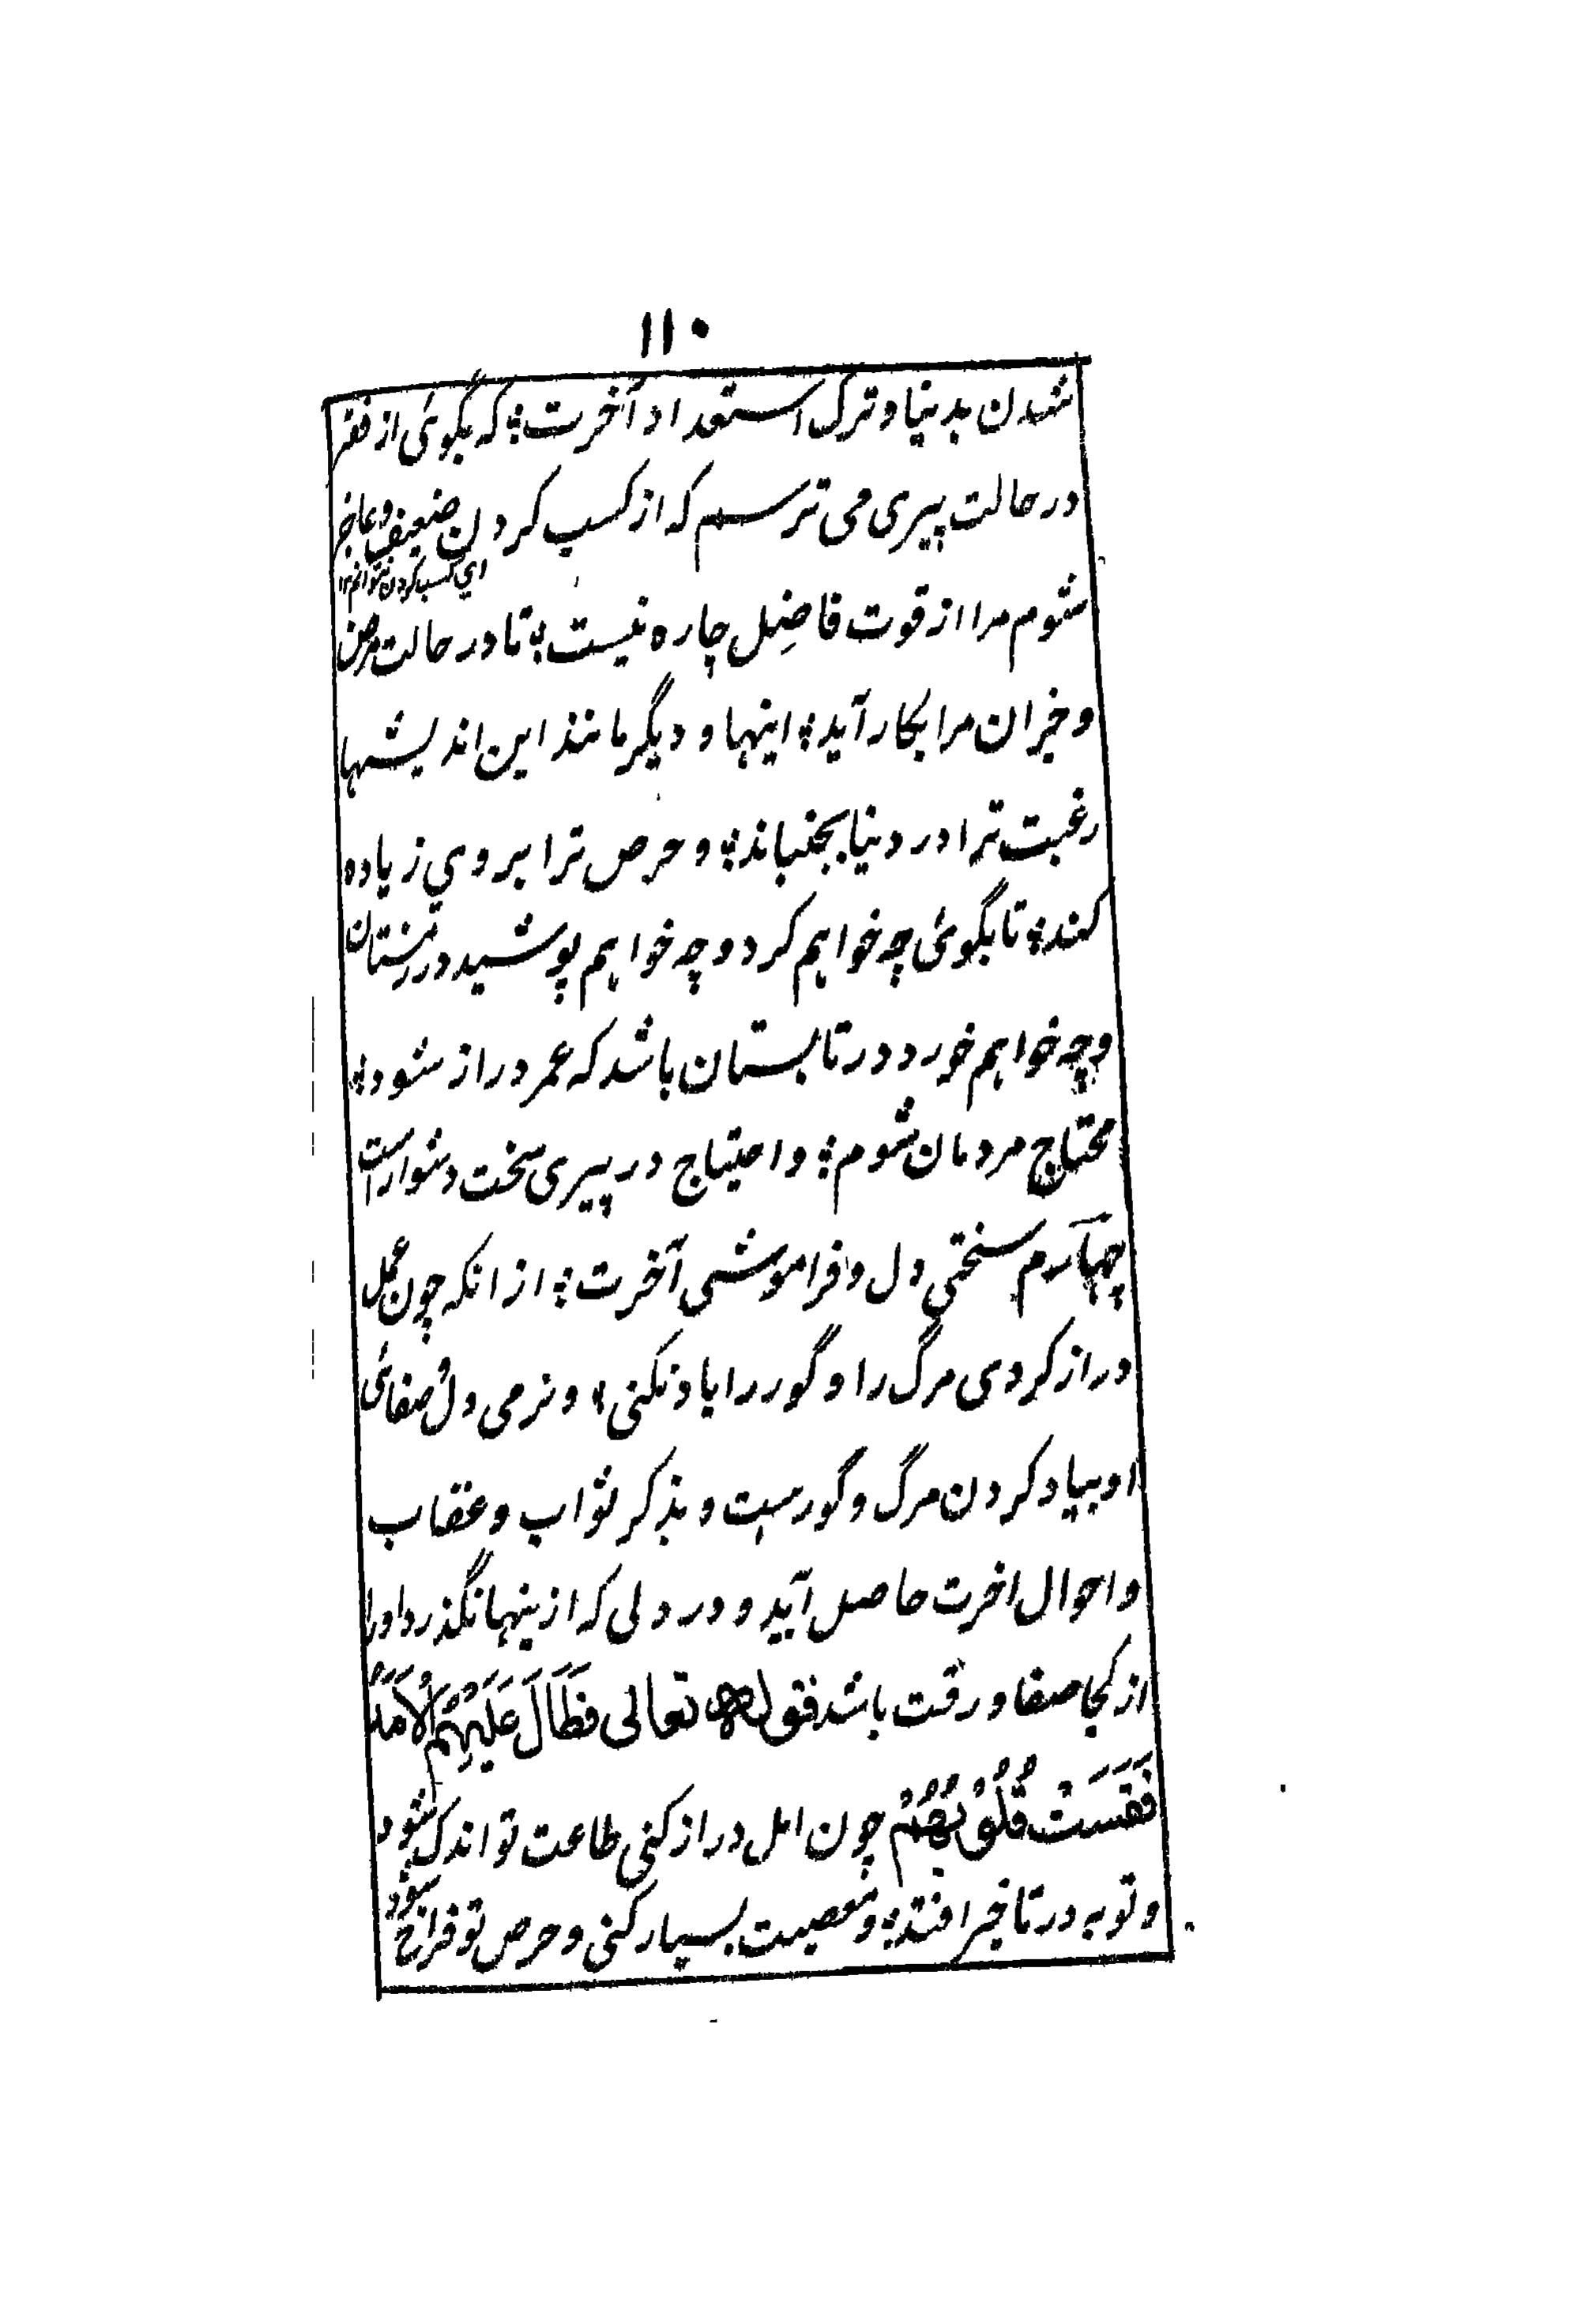 ۱۱۰
شدن بدنیا و ترک استعداد آخرت؛ که بگوئی از فقر
در حالت پیری می ترسم که از کسب کردن ضعیف و عاجز
ای کسب کردن نتوانم ۱۲
شوم مرا از قوت فاضل چاره نیست؛ تا در حالت مرض
و خیران مرا بکار آید؛ اینها و دیگر مانند این اندیشها
رغبت ترا در دنیا بجنباند؛ و حرص ترا بر وی زیاده
کند؛ تا بگوئی چه خواهم کرد و چه خواهم پوشید در زمستان
و چه خواهم خورد در تابستان باشد که عمر دراز شود؛
محتاج مردمان شوم؛ و احتیاج در پیری سخت دشوار است
چهارم سختی دل و فراموشی آخرت؛ از انکه چون عمل
دراز کردی مرگ را و گور را یاد نکنی؛ و نرمی دل و صفائی
او بیاد کردن مرگ و گورست و بذکر ثواب و عقاب
و احوال اخرت حاصل آید و در دلی که ازینها نگذرد او را
از کجا صفا و رقت باشد فقوله تعالی فَطَالَ عَلَیْهِمُ الْاَمَدُ
فَقَسَتْ قُلُوْبُهُمْ چون امل دراز کنی طاعت تو اندک شود
و توبه در تاخیر افتد؛ و معصیت بسیار کنی و حرص تو فراخ شود